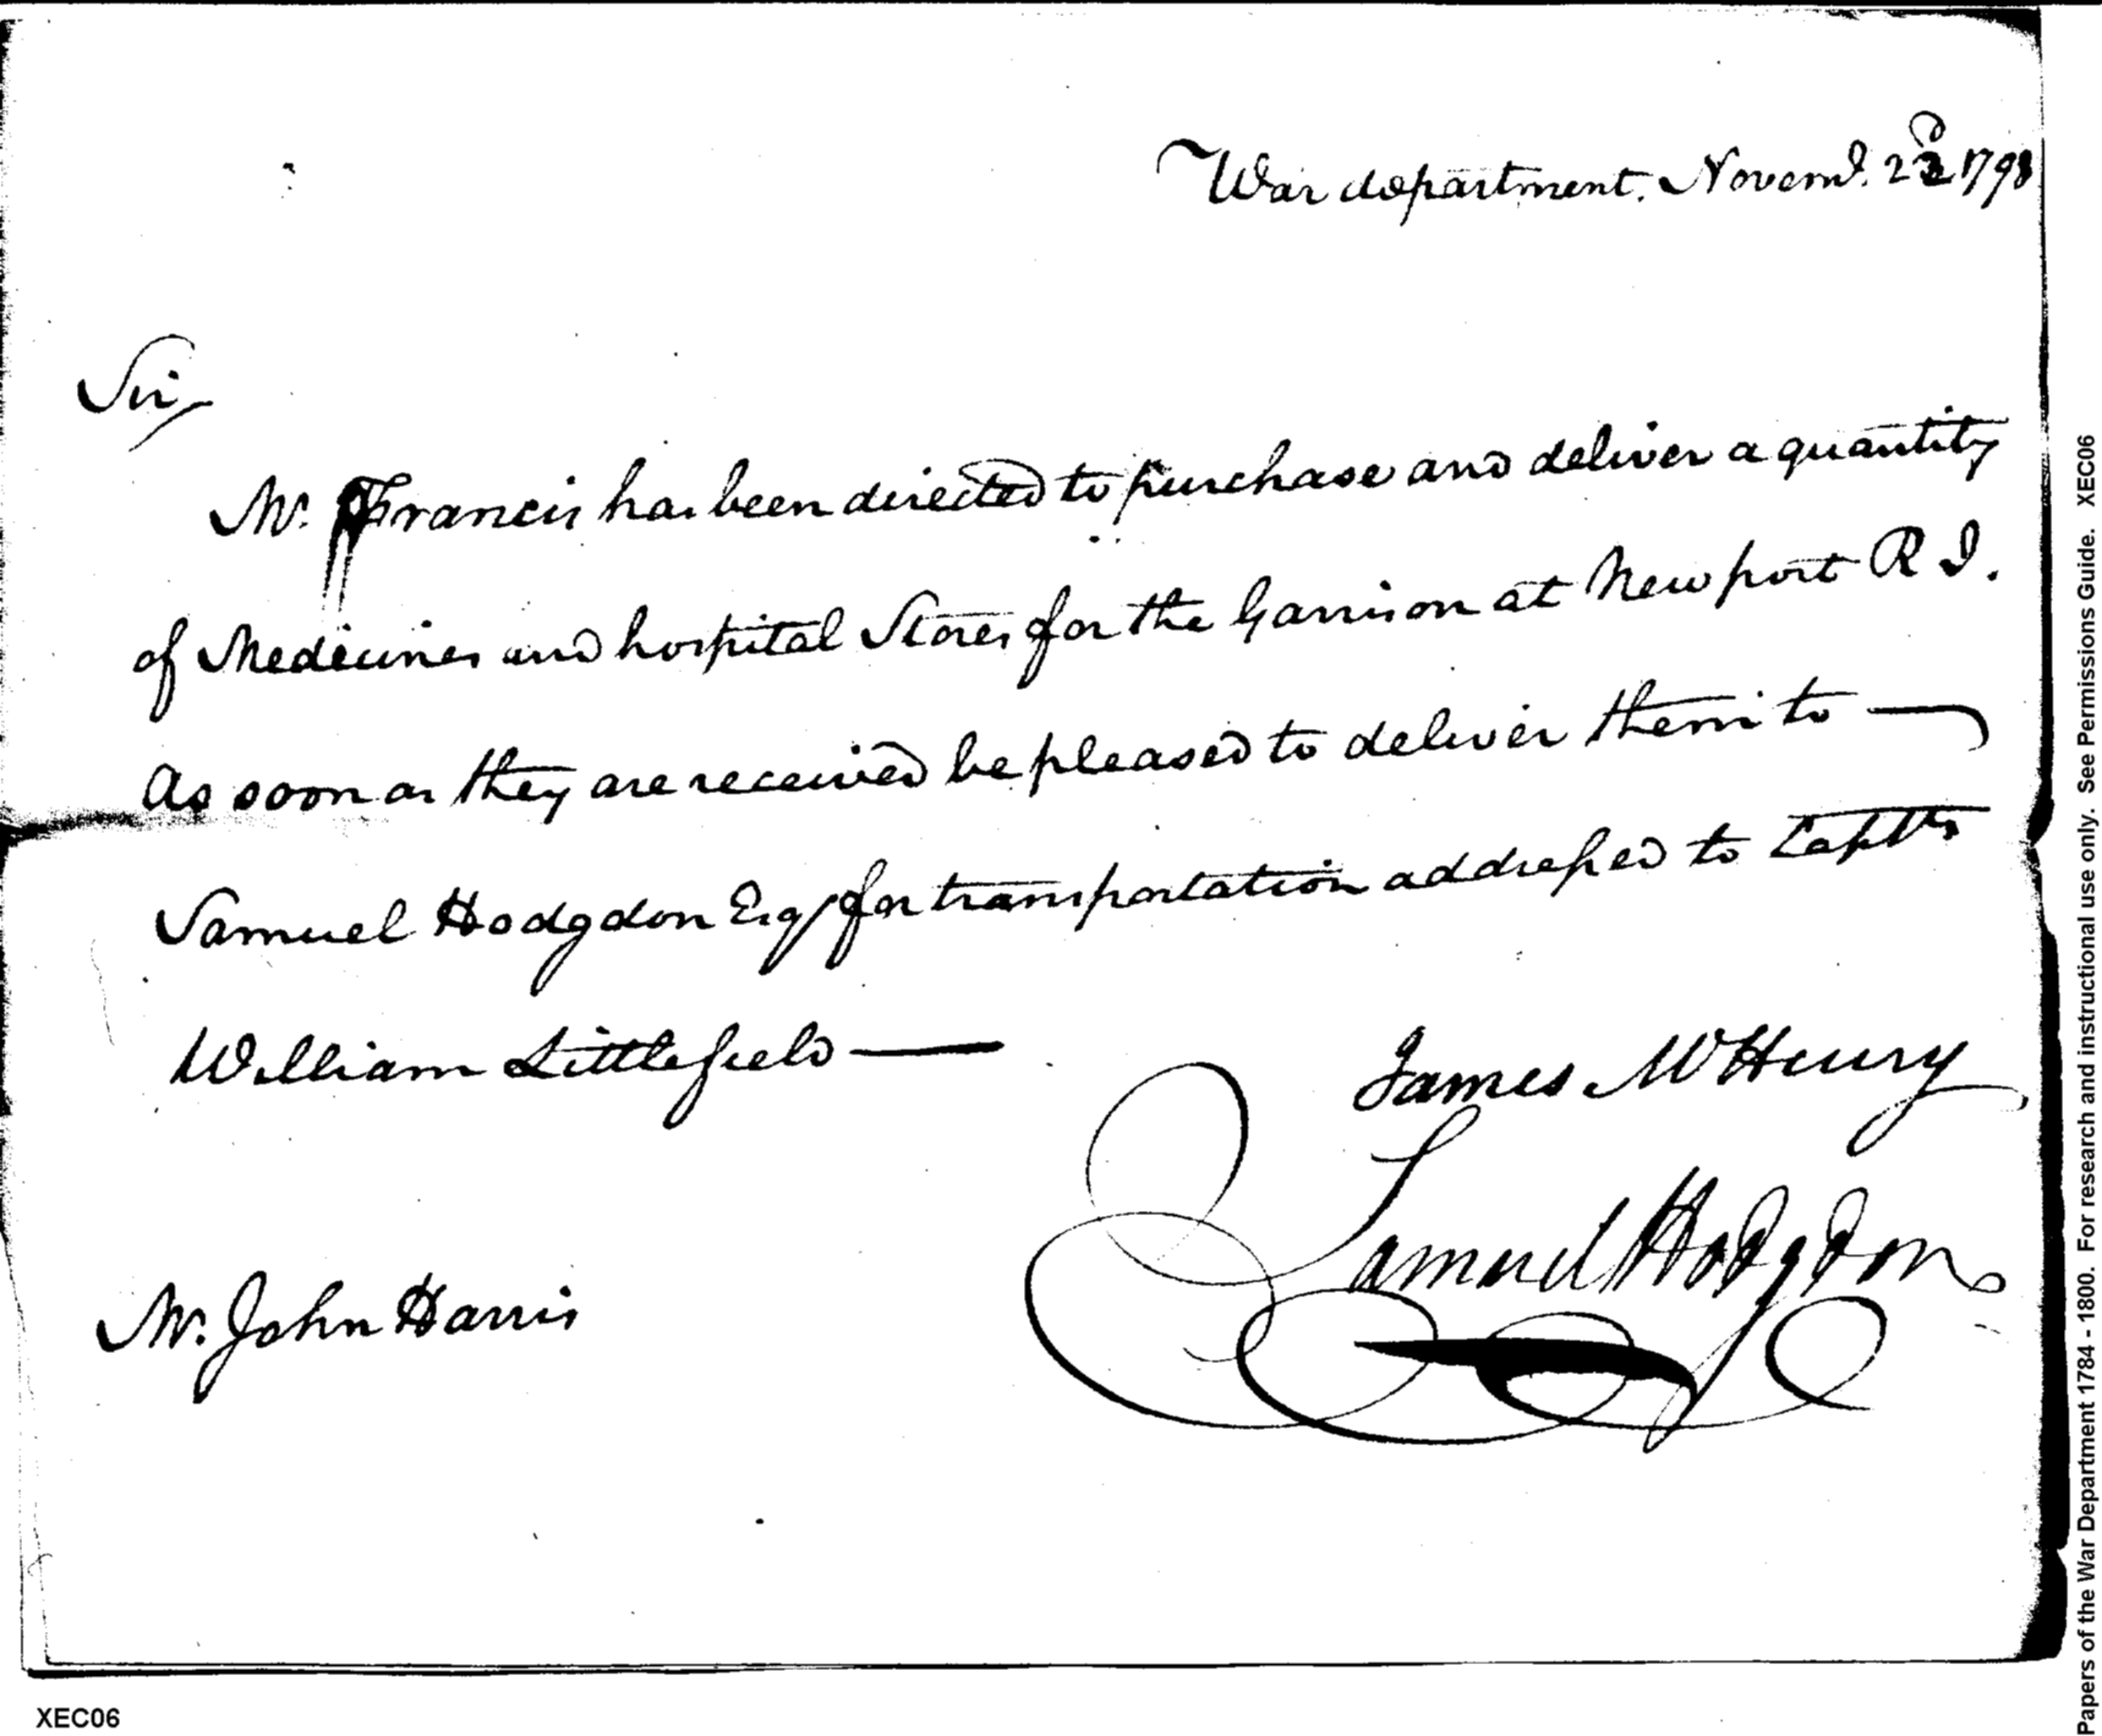 War department. Novemr. 22d 1798
Sir,
Mr. Francis has been directed to purchase and deliver a quantity
of Medicines and hospital Stores for the Garrison at Newport R I.
As soon as they are received be pleased to deliver them to —
Samuel Hodgdon Esq for transportation addressed to Captn
William Littlefield —
James McHenry
Samuel Hodgdon
Mr. John Harris
XEC06
Papers of the War Department 1784 - 1800. For research and instructional use only. See Permissions Guide. XEC06